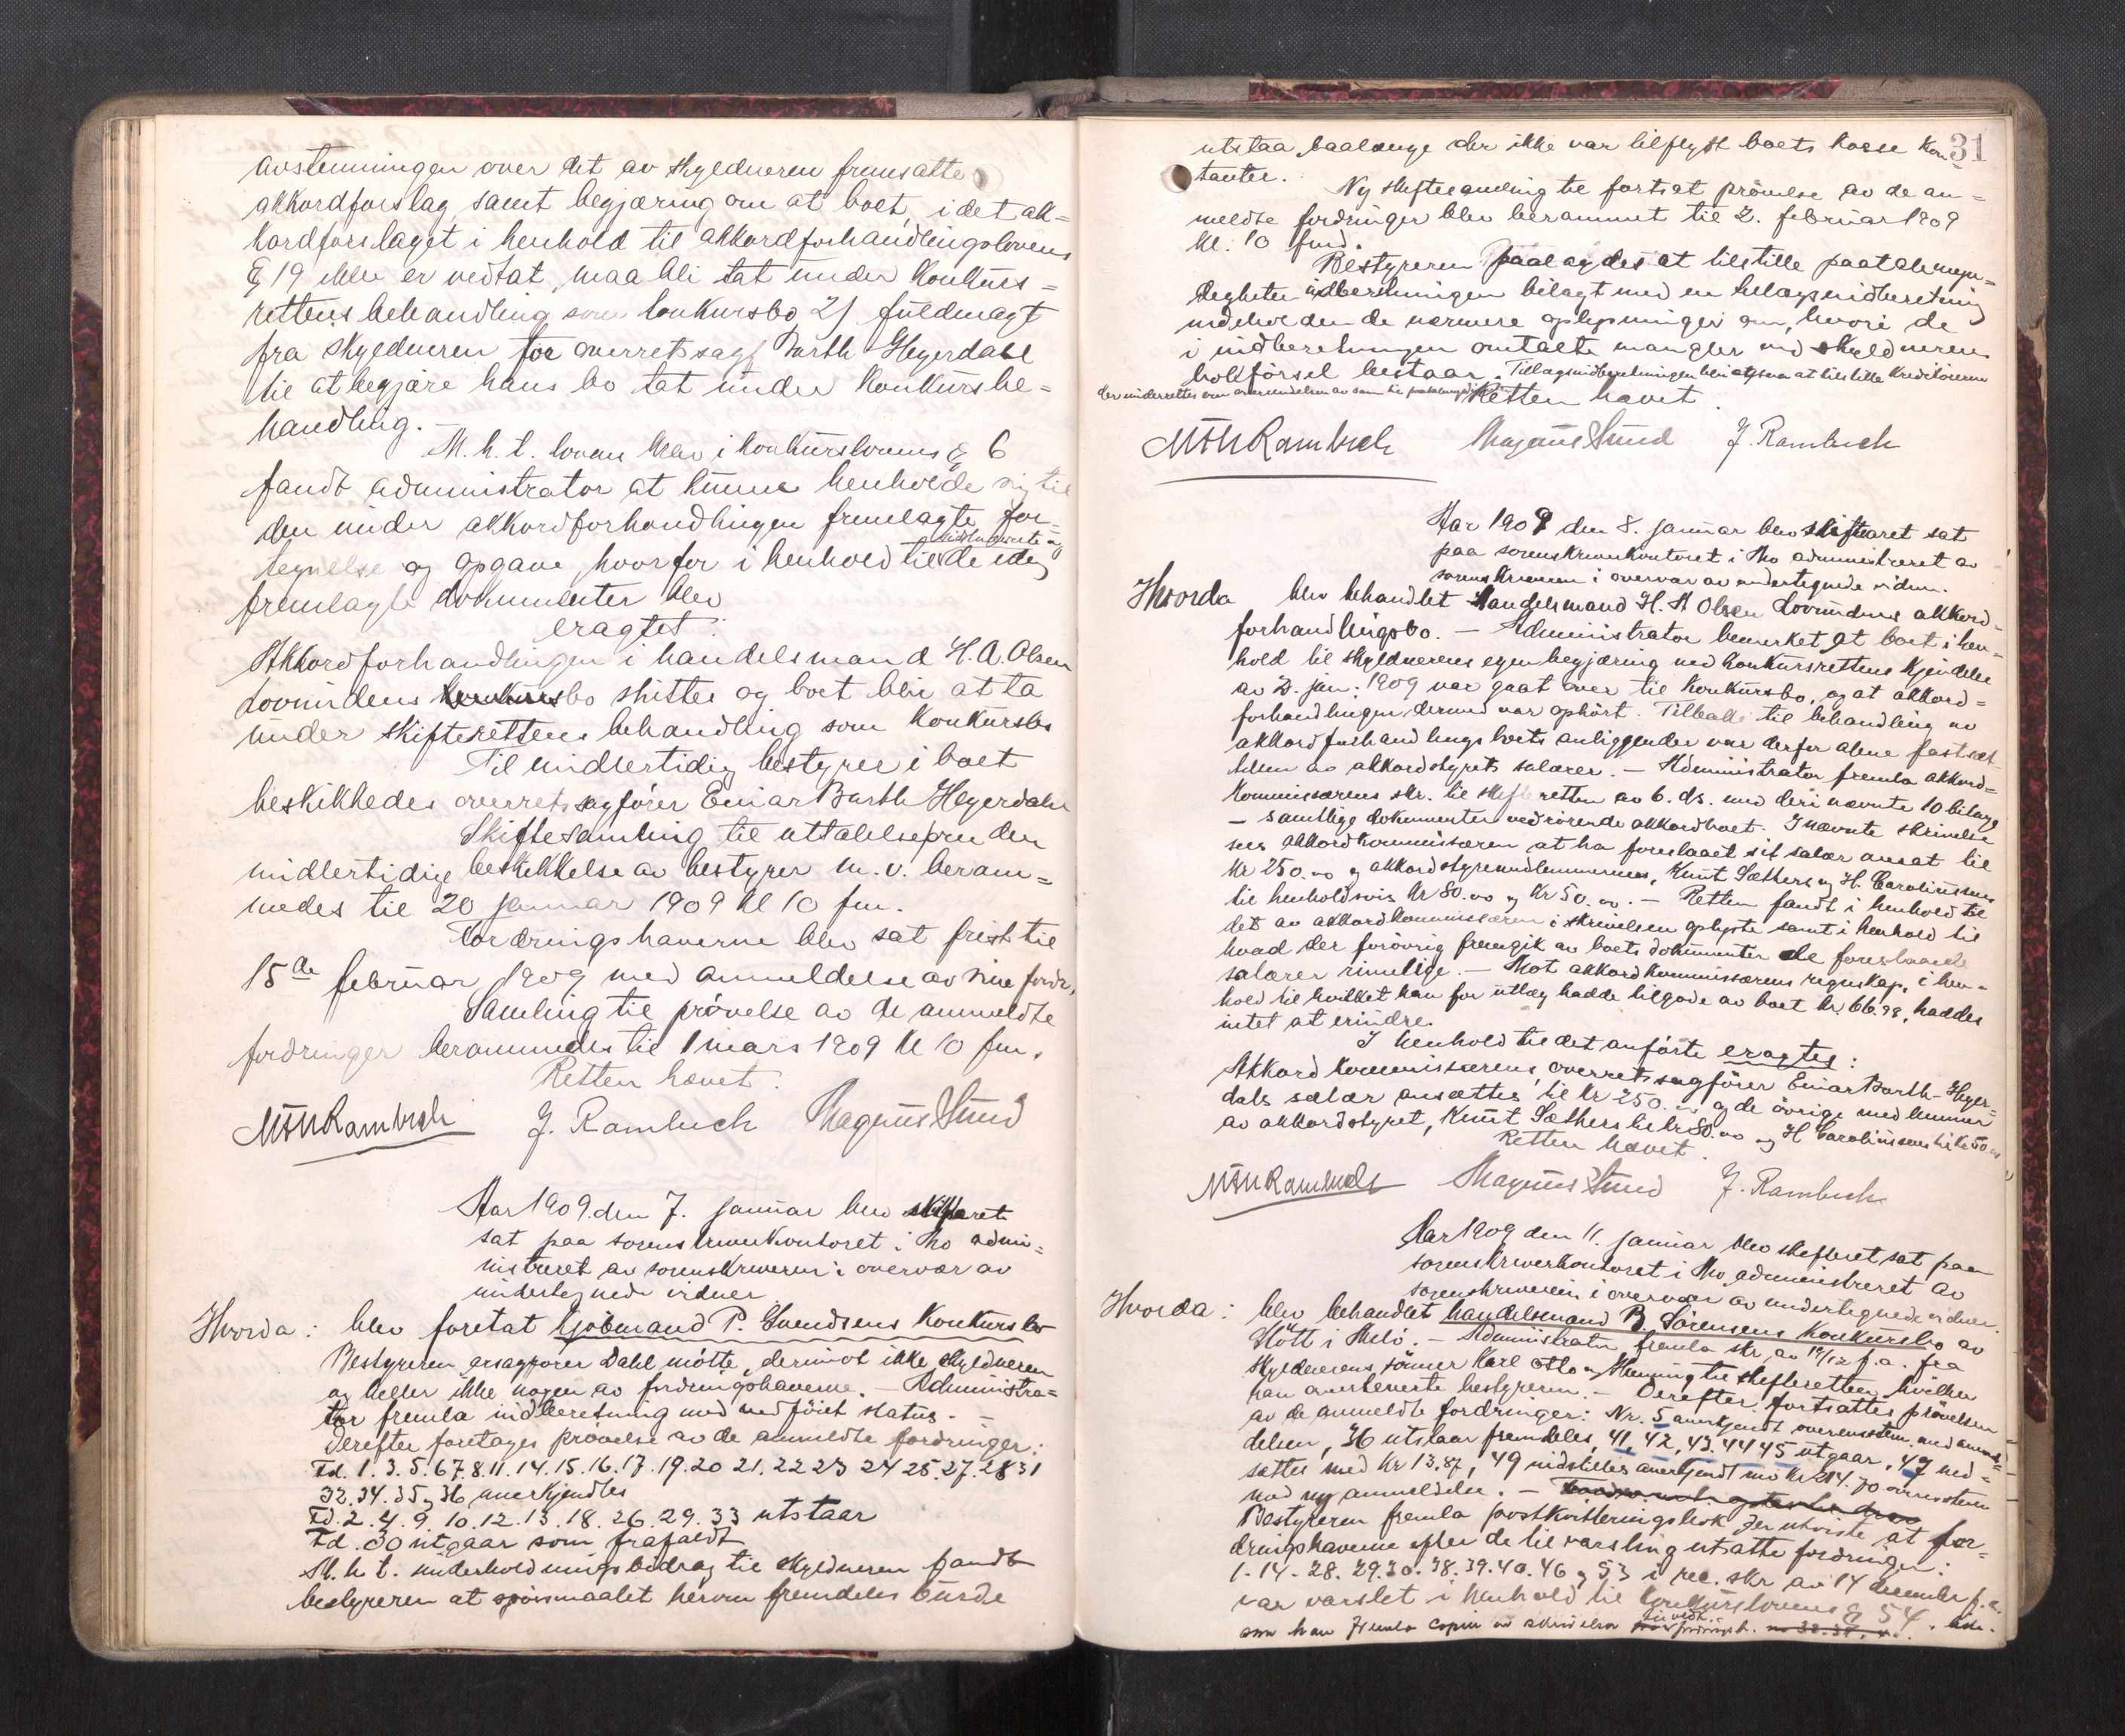 avstemningen over det av skyldneren fremsatte
akkordforslag, samt begjæring om at boet, idet ak=
kordforslaget i henhold til akkordforhandlingslovens
§ 19 ikke er vedtat, maa bli tat under konkurs=
rettens behandling som konkursbo 2) fuldmagt
fra skyldneren for overretssagf. Barth Heyerdahl
til at begjære hans bo tat under konkursbe=
handling.
M. h. t. lovens krav i konkurslovens § 6
fandt administrator at kunne henholde sig til
den under akkordforhandlingen fremlagte for=
tegnelse og opgave, hvorfor i henhold til de idag
fremlagte dokumenter blev
eragtet:
Akkordforhandlingen i handelsmand H. A. Olsen
Lovundens konkursbo sluttes og boet blir at ta
under skifterettens behandling som konkursbo
Til midlertidig bestyrer i boet
beskikkedes overretssagfører Einar Barth Heyerdahl
Skiftesamling til uttalelse om den
midlertidige beskikkelse av bestyrer m. v. beram=
medes til 20 januar 1909 kl 10 fm.
Fordringshaverne blev sat frist til
15de februar 1909 med anmeldelse av sine fordr.
Samling til prövelse av de anmeldte
fordringer berammedes til 1 mars 1909 kl 10 fm.
Retten hævet.
J. Rambech Magnus Sund
Aar 1909 den 7. januar blev skifteret
sat paa sorenskriverkontoret i Mo admi=
nistreret av sorenskriveren i overvær av
undertegnede vidner
Hvorda: blev foretat kjöbmand P. Svendsens konkursbo
Bestyreren, orsagförer Dahl mötte, derimot ikke skyldneren
og heller ikke nogen av fordringshaverne. – Administra=
tor fremla indberetning med vedföiet status. –
Derefter foretages prövelse av de anmeldte fordringer:
Fd. 1. 3. 5. 6 7. 8. 11. 14. 15. 16. 17. 19. 20 21. 22 23 24 25. 27. 28 31
32. 34. 35 og 36 anerkjendtes
Fd. 2. 4. 9. 10. 12. 13. 18. 26. 29. 33 utstaar
Fd. 30 utgaar som frafaldt
M. h. t. underholdningsbidrag til skyldneren fandt
bestyreren at spörsmaalet herom fremdeles burde
31
utstaa, saalænge der ikke var tilflydt boets kasse kon=
tanter.
Ny skiftesamling til fortsat prövelse av de an=
meldte fordringer blev berammet til 2. februar 1909
kl. 10 fmd.
Bestyreren paalagdes at tilstille paatalemyn=
digheten indberetningen bilagt med en tillægsindberetning
indeholdende nærmere oplysninger om, hvori de
i indberetningen omtalte mangler ved skyldnerens
bokförsel bestaar. Tillægsindberetningen blir ogsaa at tilstille kreditorerne
Retten hævet.
Magnus Sund J. Rambech
Aar 1909 den 8. januar blev skifteret sat
paa sorenskriverkontoret i Mo administreret av
sorenskriveren i overvær av undertegnede vidner.
Hvorda blev behandlet handelsmand H. A Olsen Lovundens akkord=
forhandlingsbo. – Administrator bemerket at boet i hen=
hold til skyldnerens egen begjæring ved konkursrettens kjendelse
av 2. jan. 1909 var gaat over til konkursbo, og at akkord=
forhandlingen dermed var ophört. Tilbake til behandling av
akkordforhandlingsboets anliggender var derfor alene fastsæt=
telsen av akkordstyrets salærer. – Administrator fremla akkord=
kommissærens skr. til skifteretten av 6. ds. med deri nævnte 10 bilag
– samtlige dokumenter vedrörende akkordboet. I nævnte skrivelse
sees akkordkommissæren at ha foreslaaet sit salær ansat til
kr 250.00 og akkordstyremedlemmernes, Knut Sæthers og H. Carolinssens
til henholdsvis kr 80.00 og kr 50.00. – Retten fandt i henhold til
det av akkordkommissæren i skrivelsen oplyste samt i henhold til
hvad der forövrig fremgik av boets dokumenter de foreslaaede
salærer rimelige. – Mot akkordkommissærens regnskap, i hen=
hold til hvilket han for utlæg hadde tilgode av boet kr, 66.98, haddes
intet at erindre.
I henhold til det anförte eragtes:
Akkordkommissærens, overretssagförer Einar Barth-Heyer=
dals salær ansættes til kr 250.00 og de övrige medlemmer
av akkordstyret, Knut Sæthers til kr 80.00 og H Carolinssens til kr 50.00
Retten hævet.
Magnus Sund J. Rambech
Aar 1909 den 11. januar blev skifteret sat paa
sorenskriverkontoret i Mo administreret av
sorenskriveren i overvær av undertegnede vidner.
Hvorda: blev behandlet handelsmand B. Sörensens konkursbo av
Stött i Melö. – Administrator fremla skr. av 19/12 f.a. fra
skyldnerens sönner Karl Otto og Henning til skifteretten hvilken
han oversendte bestyreren. – Derefter fortsattes prövelsen
av de anmeldte fordringer: Nr. 5 anerkjendt overensstem. med anmel=
delsen, 36 utstaar fremdeles, 41, 42, 43. 44 45 utgaar, 47 ned=
sættes med kr 13.87, 49 anerkjendt med kr 214.70 overensstem
med ny anmeldelse. –
Bestyreren fremla postkvitteringsbok der utviste at for=
dringshaverne efter de til varsling utsatte fordringer:
1. 14. 28. 29. 30. 38. 39. 40. 46 og 53 i rec. skr av 14 december f.a.
var varslet i henhold til konkurslovens § 54.
som han fremla copier av